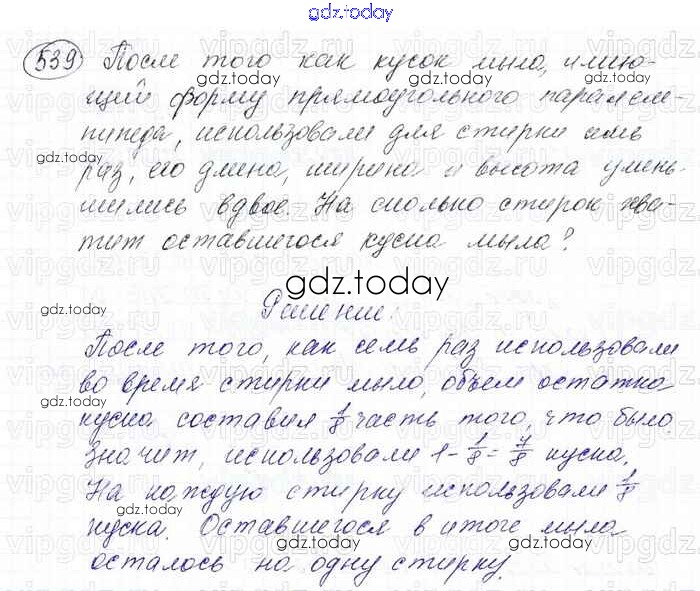 gdz.today
539 После того как кусок мыла, имею-
щий форму прямоугольного параллеле-
пипеда, использовали для стирки семь
раз, его длина, ширина и высота умень-
шились вдвое. На сколько стирок хва-
тит оставшегося куска мыла?
gdz.today
Решение.
После того, как семь раз использовали
во время стирки мыло, объем остатка
куска составил 1/8 часть того, что было.
Значит, использовали 1 - 1/8 = 7/8 куска.
На каждую стирку использовали 1/8
куска. Оставшегося в итоге мыла
осталось на одну стирку.